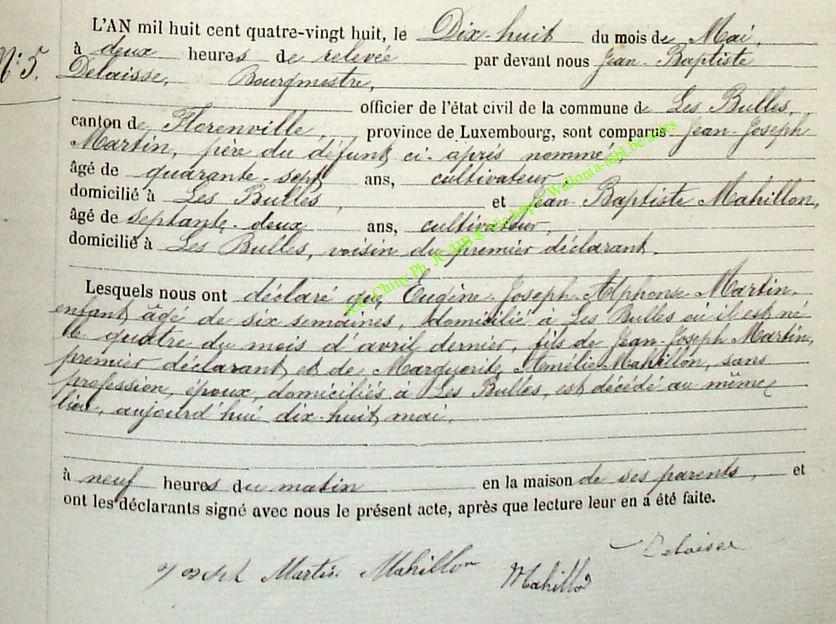 L'AN mil huit cent quatre-vingt huit, le Dix-huit du mois de Mai,
N° 5. à deux heures de relevée par devant nous Jean-Baptiste
Delaisse, Bourgmestre,
officier de l'état civil de la commune de Les Bulles,
canton de Florenville, province de Luxembourg, sont comparus Jean-Joseph
Martin, père du défunt ci-après nommé,
âgé de quarante-sept ans, cultivateur,
domicilié à Les Bulles, et Jean Baptiste Mahillon,
âgé de septante-deux ans, cultivateur,
domicilié à Les Bulles, voisin du premier déclarant.
Lesquels nous ont déclaré que Eugène-Joseph-Alphonse Martin,
enfant âgé de six semaines, domicilié à Les Bulles où il est né
le quatre du mois d'avril dernier, fils de Jean-Joseph Martin,
premier déclarant et de Marguerite Amélie Mahillon, sans
profession, époux, domiciliés à Les Bulles, est décédé au même
lieu, aujourd'hui dix-huit mai,
à neuf heures du matin en la maison de ses parents, et
ont les déclarants signé avec nous le présent acte, après que lecture leur en a été faite.
Joseph Martin Mahillon Mahillon Delaisse